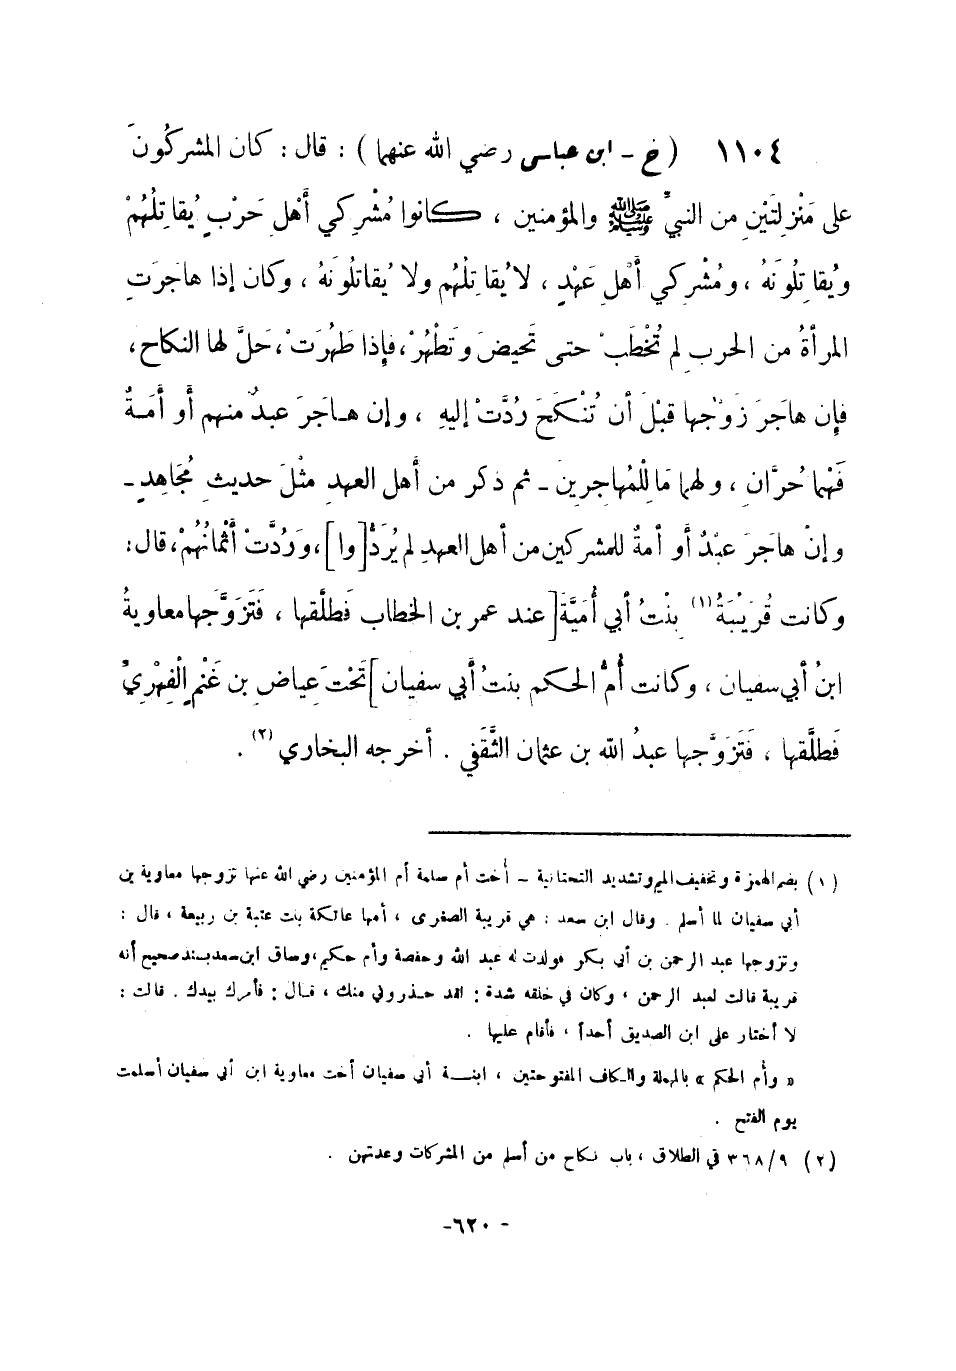 ١١٠٤ ( خ - ابن عباس رضي الله عنهما ) : قال : كان المشركُونَ
على مَنْزِلتَيْنِ من النبيِّ ﷺ والمؤمنين ، كانوا مُشْرِكي أَهْلِ حَرْبٍ يُقَاتِلُهُمْ
ويُقاتِلُونَهُ ، ومُشْرِكي أَهْلِ عَهْدٍ ، لا يُقاتِلُهُم ولا يُقاتلُونَهُ ، وكان إذا هاجَرَتِ
المرأةُ من الحربِ لم تُخْطَبْ حتى تَحيضَ وَتَطْهُرْ، فإذا طَهُرَتْ، حَلَّ لها النكاح،
فإِن هاجَرَ زَوْجُها قبْلَ أن تُنْكَحَ رُدَّتْ إليهِ ، وإن هـاجَرَ عبدٌ منهم أَو أَمَـةٌ
فَهُما حُرَّانِ ، ولهما مَا لِلْمُهاجِرِينَ - ثم ذكر من أَهل العهدِ مثْلَ حديثِ مُجَاهِدٍ -
وإنْ هاجَرَ عبْدٌ أَو أمةٌ للمشركين من أَهل العهدِ لم يُرَدُّ[وا]، وَرُدَّتْ أَثْمانُهُمْ، قال:
وكانت قُرَيْبَةُ(١) بِنْتُ أَبي أُمَيَّةَ [عند عمر بن الخطاب فَطلَّقها ، فَتَزَوَّجها معاويةُ
ابنُ أَبي سفيان ، وكانت أُمُّ الحكم بنتُ أَبي سفيان] تَحْتَ عِياضِ بن غَنْمٍ الْفِهْرِيِّ
فَطلَّقها ، فَتَزَوَّجها عبدُ الله بن عثمان الثَّقَفي . أَخرجه البخاري(٢) .
(١) بضم الهمزة وتخفيف الميم وتشديد التحتانية - أخت أم سلمة أم المؤمنين رضي الله عنها تزوجها معاوية بن
أبي سفيان لما أسلم . وقال ابن سعد : هي قريبة الصغرى ، أمها عاتكة بنت عتبة بن ربيعة ، قال :
وتزوجها عبد الرحمن بن أبي بكر فولدت له عبد الله وحفصة وأم حكيم، وساق ابن سعد بسند صحيح أنه
قريبة قالت لعبد الرحمن ، وكان في خلقه شدة : لقد حـذروني منك ، قـال : فأمرك بيدك . قالت :
لا أختار على ابن الصديق أحداً ، فأقام عليها .
« وأم الحكم » بالمهملة والكاف المفتوحتين ، ابنـــة أبي سفيان أخت معاوية ابن أبي سفيان أسلمت
يوم الفتح .
(٢) ٩/ ٣٦٨ في الطلاق ، باب نكاح من أسلم من المشركات وعدتهن .
- ٦٢٠ -